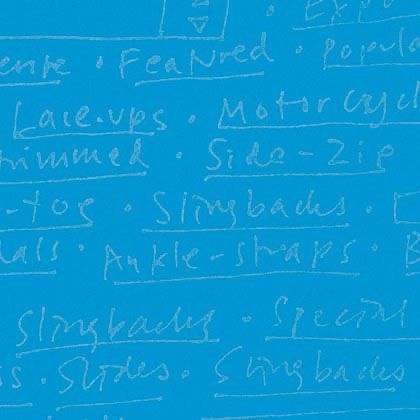 Featured · popula
Lace-ups · Motorcycl
trimmed · Side-Zip
-toe · Slingbacks ·
dals · Ankle-straps · B
Slingbacks · Special
s · Slides · Slingbacks